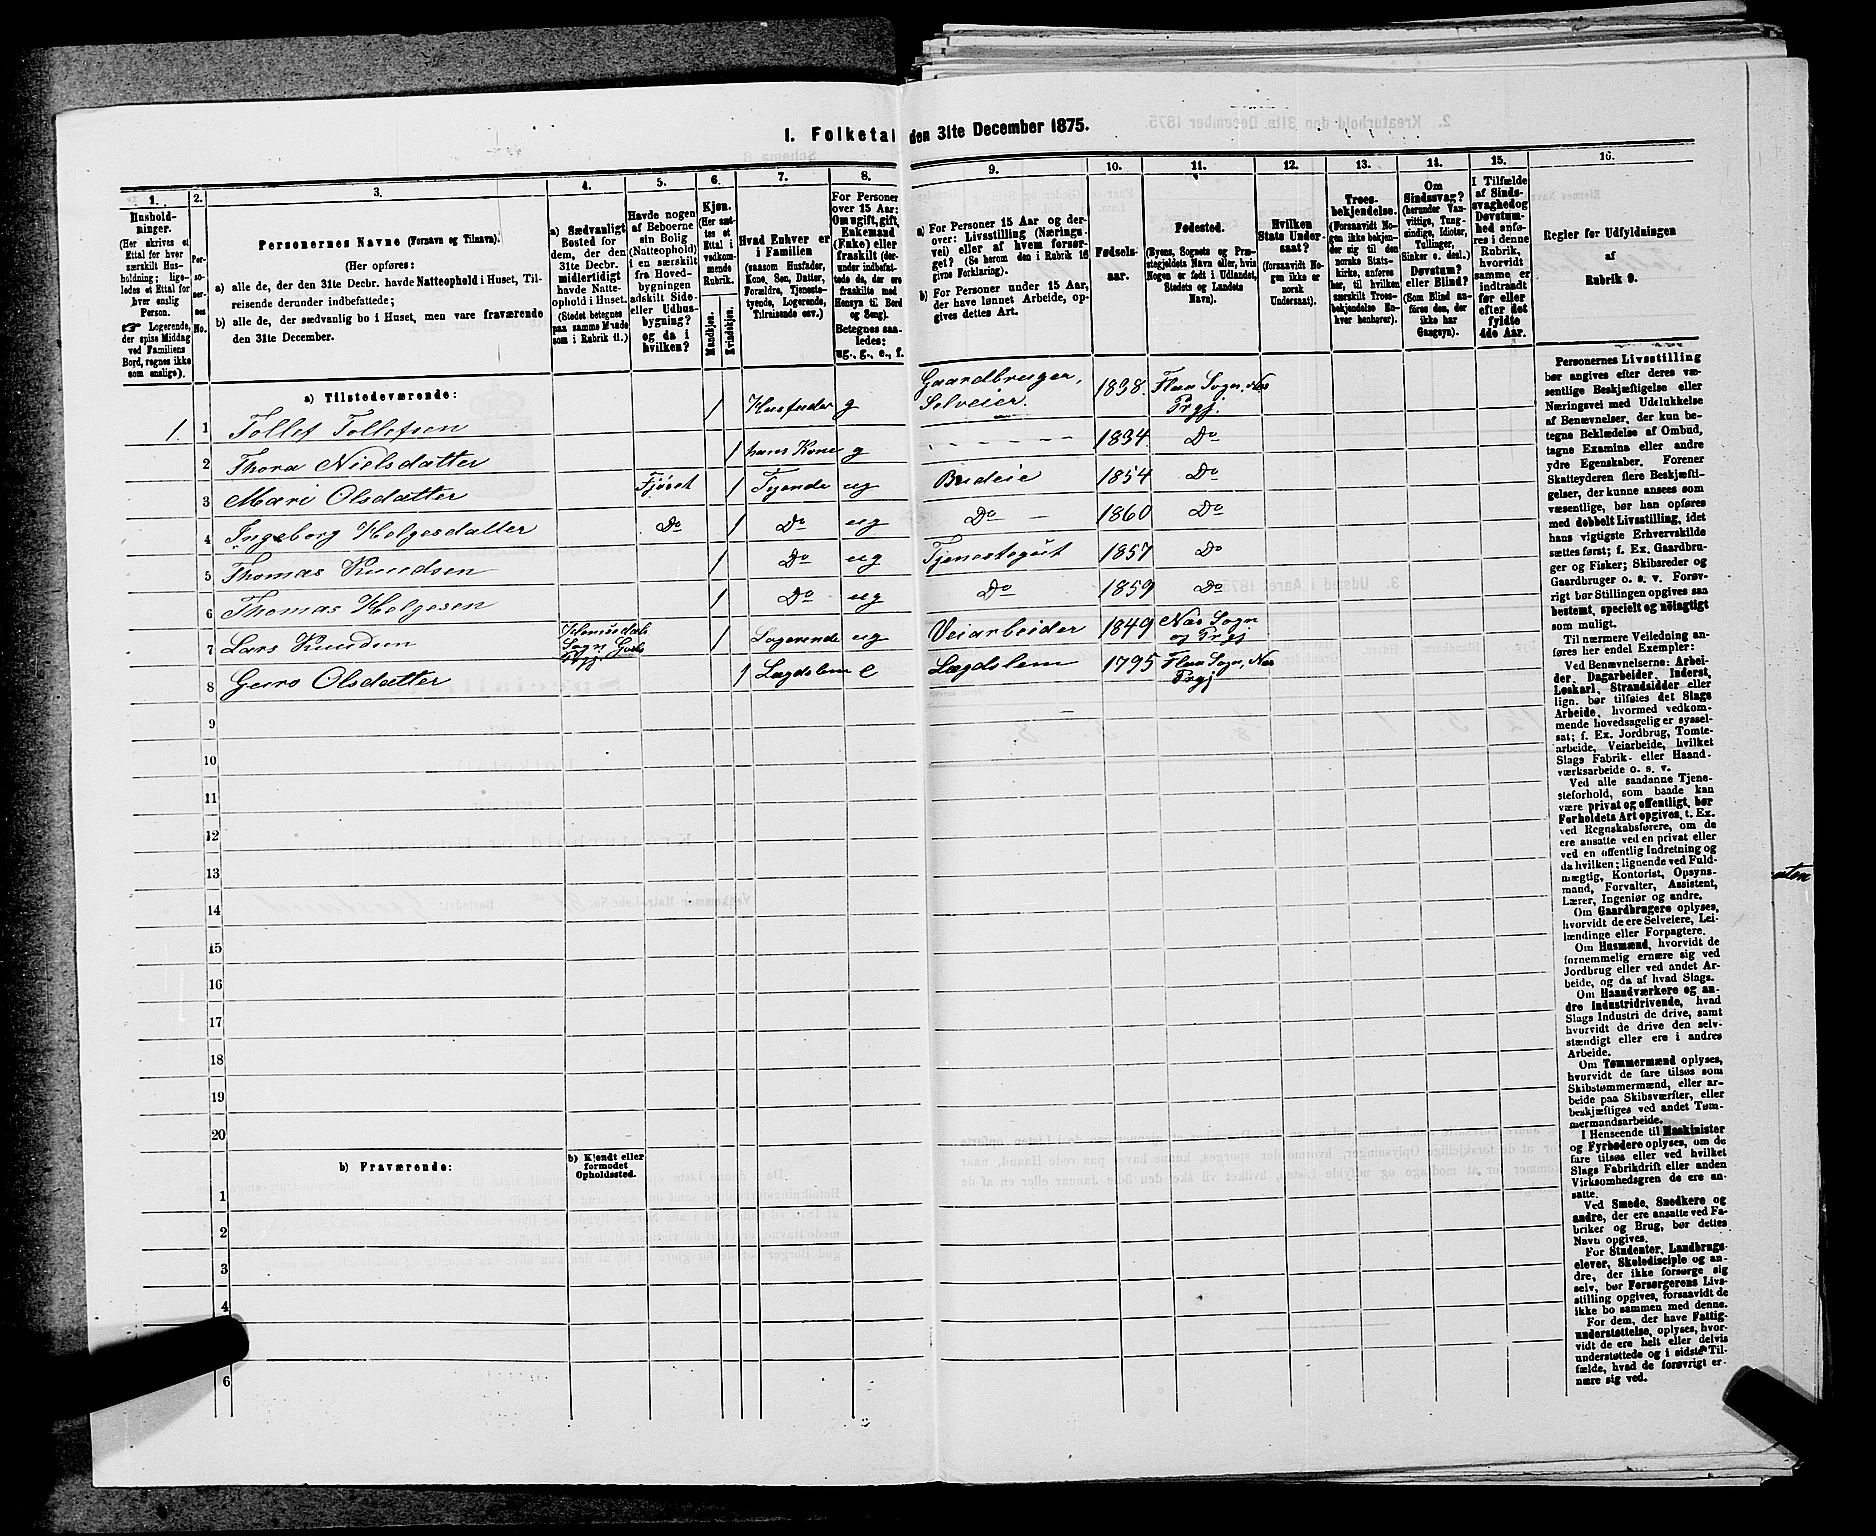 1. Folketal den 31te December 1875.
1.
Husholdninger.
(Her skrives et Ettal for hver særskilt Husholdning; ligeledes et Ettal for hver enslig Person.
☞ Logerende, der spise Middag ved Familiens Bord, regnes ikke som enslige).
2.
Personernes No.
3.
Personernes Navne (Fornavn og Tilnavn).
(Her opføres:
a) alle de, der den 31te Decbr. havde Natteophold i Huset, Tilreisende derunder indbefattede;
b) alle de, der sædvanlig bo i Huset, men vare fraværende den 31te December.
4.
a) Sædvanligt Bosted for dem, der den 31te Decbr. midlertidigt havde Natteophold i Huset.
(Stedet betegnes paa samme Maade som i Rubrik 11.)
5.
Havde nogen af Beboerne sin Bolig (Natteophold) i en særskilt fra Hovedbygningen adskilt Side- eller Udhusbygning? og da i hvilken?
6.
Kjøn.
(Her sættes et Ettal i vedkommende Rubrik.
Mandkjøn.
Kvindekjøn.
7.
Hvad Enhver er i Familien
(saasom Husfader, Kone, Søn, Datter, Forældre, Tjenestetyende, Logerende, Tilreisende osv.)
8.
For Personer over 15 Aar: Om ugift, gift, Enkemand (Enke) eller fraskilt (derunder indbefattede de, der ere fraskilte med Hensyn til Bord og Seng).
Betegnes saaledes: ug., g., e., f.
9.
a) For Personer 15 Aar og derover: Livsstilling (Næringsvei) eller af hvem forsørget? (Se herom den i Rubrik 16 givne Forklaring).
b) For Personer under 15 Aar, der have lønnet Arbeide, opgives dettes Art.
10.
Fødselsaar.
11.
Fødested.
(Byens, Sognets og Præstegjeldets Navn eller, hvis Nogen er født i Udlandet, Stedets og Landets Navn).
12.
Hvilken Stats Undersaat?
(forsaavidt Nogen ikke er norsk Undersaat).
13.
Troesbekjendelse.
(Forsaavidt Nogen ikke bekjender sig til den norske Statskirke, anføres her, til hvilken særskilt Troesbekjendelse Enhver henhører).
14.
Om Sindssvag?
(herunder Vanvittige, Tungsindige, Idioter, Tullinger, Sinker o. desl.).
Døvstum? eller Blind?
(Som Blind anføres den, der ikke har Gangsyn).
15.
I Tilfælde af Sindssvaghed og Døvstumhed anføres i denne Rubrik, hvorvidt samme er indtraadt før eller efter det fyldte 4de Aar.
16.
Regler for Udfyldningen
af
Rubrik 9.
a) Tilstedeværende:
1. 1 Tollef Tollefsen 1 Husfader g Gaardbruger, Selveier. 1838. Flaa Sogn, Næs Prgj.
2 Thora Nielsdatter 1 hans Kone g - - - - - 1834. Do
3 Mari Olsdatter Fjøset 1 Tjende ug Budeie 1854 Do
4 Ingeborg Helgesdatter Do 1 Do ug Do - 1860 Do
5 Thomas Knudsen 1 Do ug Tjenestegut 1857 Do
6 Thomas Helgesen 1 Do ug Do 1859 Do
7 Lars Knudsen Sogn Prgj. 1 Logerende ug Veiarbeider 1849 Næs Sogn og Prgj
8 Gerro Olsdatter 1 Lægdslem e Lægdslem 1795 Flaa Sogn, Næs Prgj
9
10
11
12
13
14
15
16
17
18
19
20
b) Fraværende:
b) Kjendt eller formodet Opholdssted.
1
2
3
4
6
Personernes Livsstilling
bør angives efter deres væsentlige
Beskjæftigelse eller
Næringsvei med Udelukkelse
af Benævnelser, der kun betegne
Beklædelse af Ombud,
tagne Examina eller andre
ydre Egenskaber. Forener
Skatteyderen flere Beskjæftigelser,
der kunne ansees som
væsentlige, bør han opføres
med dobbelt Livsstilling, idet
hans vigtigste Erhvervskilde
sættes først; f. Ex. Gaardbruger
og Fisker; Skibsreder og
Gaardbruger o. s. v. Forøvrigt
bør Stillingen opgives saa
bestemt, specielt og nøiagtigt
som muligt.
Til nærmere Veiledning anføres
her endel Exempler:
Ved Benævnelserne: Arbeider,
Dagarbeider, Inderst,
Løskarl, Strandsidder eller
lign. bør tilføies det Slags
Arbeide, hvormed vedkommende
hovedsagelig er sysselsat;
f. Ex. Jordbrug, Tomtearbeide,
Veiarbeide, hvilket
Slags Fabrik- eller Haandværksarbeide
o. s. v.
Ved alle saadanne Tjenesteforhold,
som baade kan
være privat og offentligt, bør
Forholdets Art opgives, t. Ex.
ved Regnskabsførere, om de
ere ansatte ved en privat eller
ved en offentlig Indretning og
da hvilken; lignende ved Fuldmægtig,
Kontorist, Opsynsmand,
Forvalter, Assistent,
Lærer, Ingeniør og andre.
Om Gaardbrugere oplyses,
hvorvidt de ere Selveiere, Leilændinge
eller Forpagtere.
Om Husmænd, hvorvidt de
fornemmelig ernære sig ved
Jordbrug eller ved andet Arbeide,
og da af hvad Slags.
Om Haandværkere og andre
Industridrivende, hvad
Slags Industri de drive, samt
hvorvidt de drive den selvstændigt
eller ere i andres
Arbeide.
Om Tømmermænd oplyses,
hvorvidt de fare tilsøs som
Skibstømmermænd, eller arbeide
paa Skibsværfter, eller
beskjæftiges ved andet Tømmermandsarbeide.
I Henseende til Maskinister
og Fyrbødere oplyses, om de
fare tilsøs eller ved hvilket
Slags Fabrikdrift eller anden
Virksomhedsgren de ere ansatte.
Ved Smede, Snedkere og
andre, der ere ansatte ved Fabriker
og Brug, bør dettes
Navn opgives.
For Studenter, Landbrugselever,
Skoledisciple og andre,
der ikke forsørge sig
selv, bør Forsørgerens Livsstilling
opgives, forsaavidt de
ikke bo sammen med denne.
For dem, der have Fattigunderstøttelse,
oplyses, hvorvidt
de ere helt eller delvis
understøttede og i sidste Tilfælde,
hvad de forøvrigt ernære
sig ved.